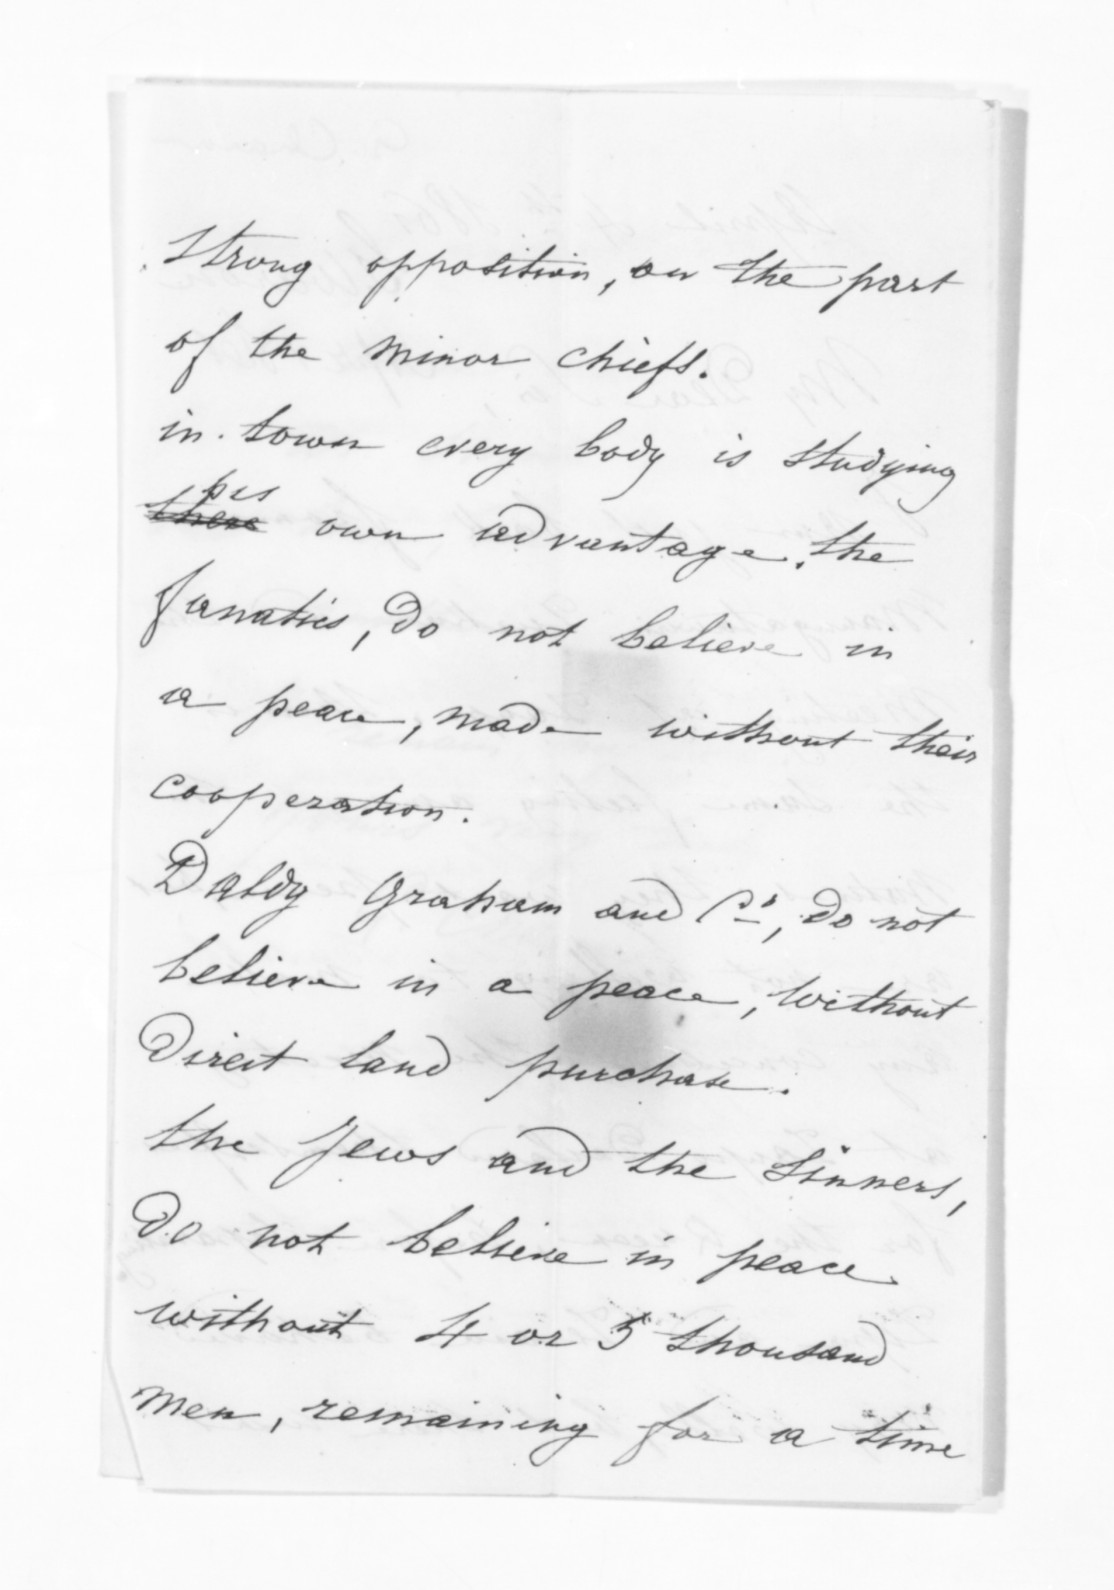 strong opposition, on the part
of the minor chiefs.
in town every body is studying
his
there own advantage. the
fanatics, do not believe in
a peace, made without their
cooperation.
Daldy Graham and Co, do not
believe in a peace, without
direct land purchase.
the Jews and the Sinners,
do not believe in peace
without 4 or 5 thousand
men, remaining for a time